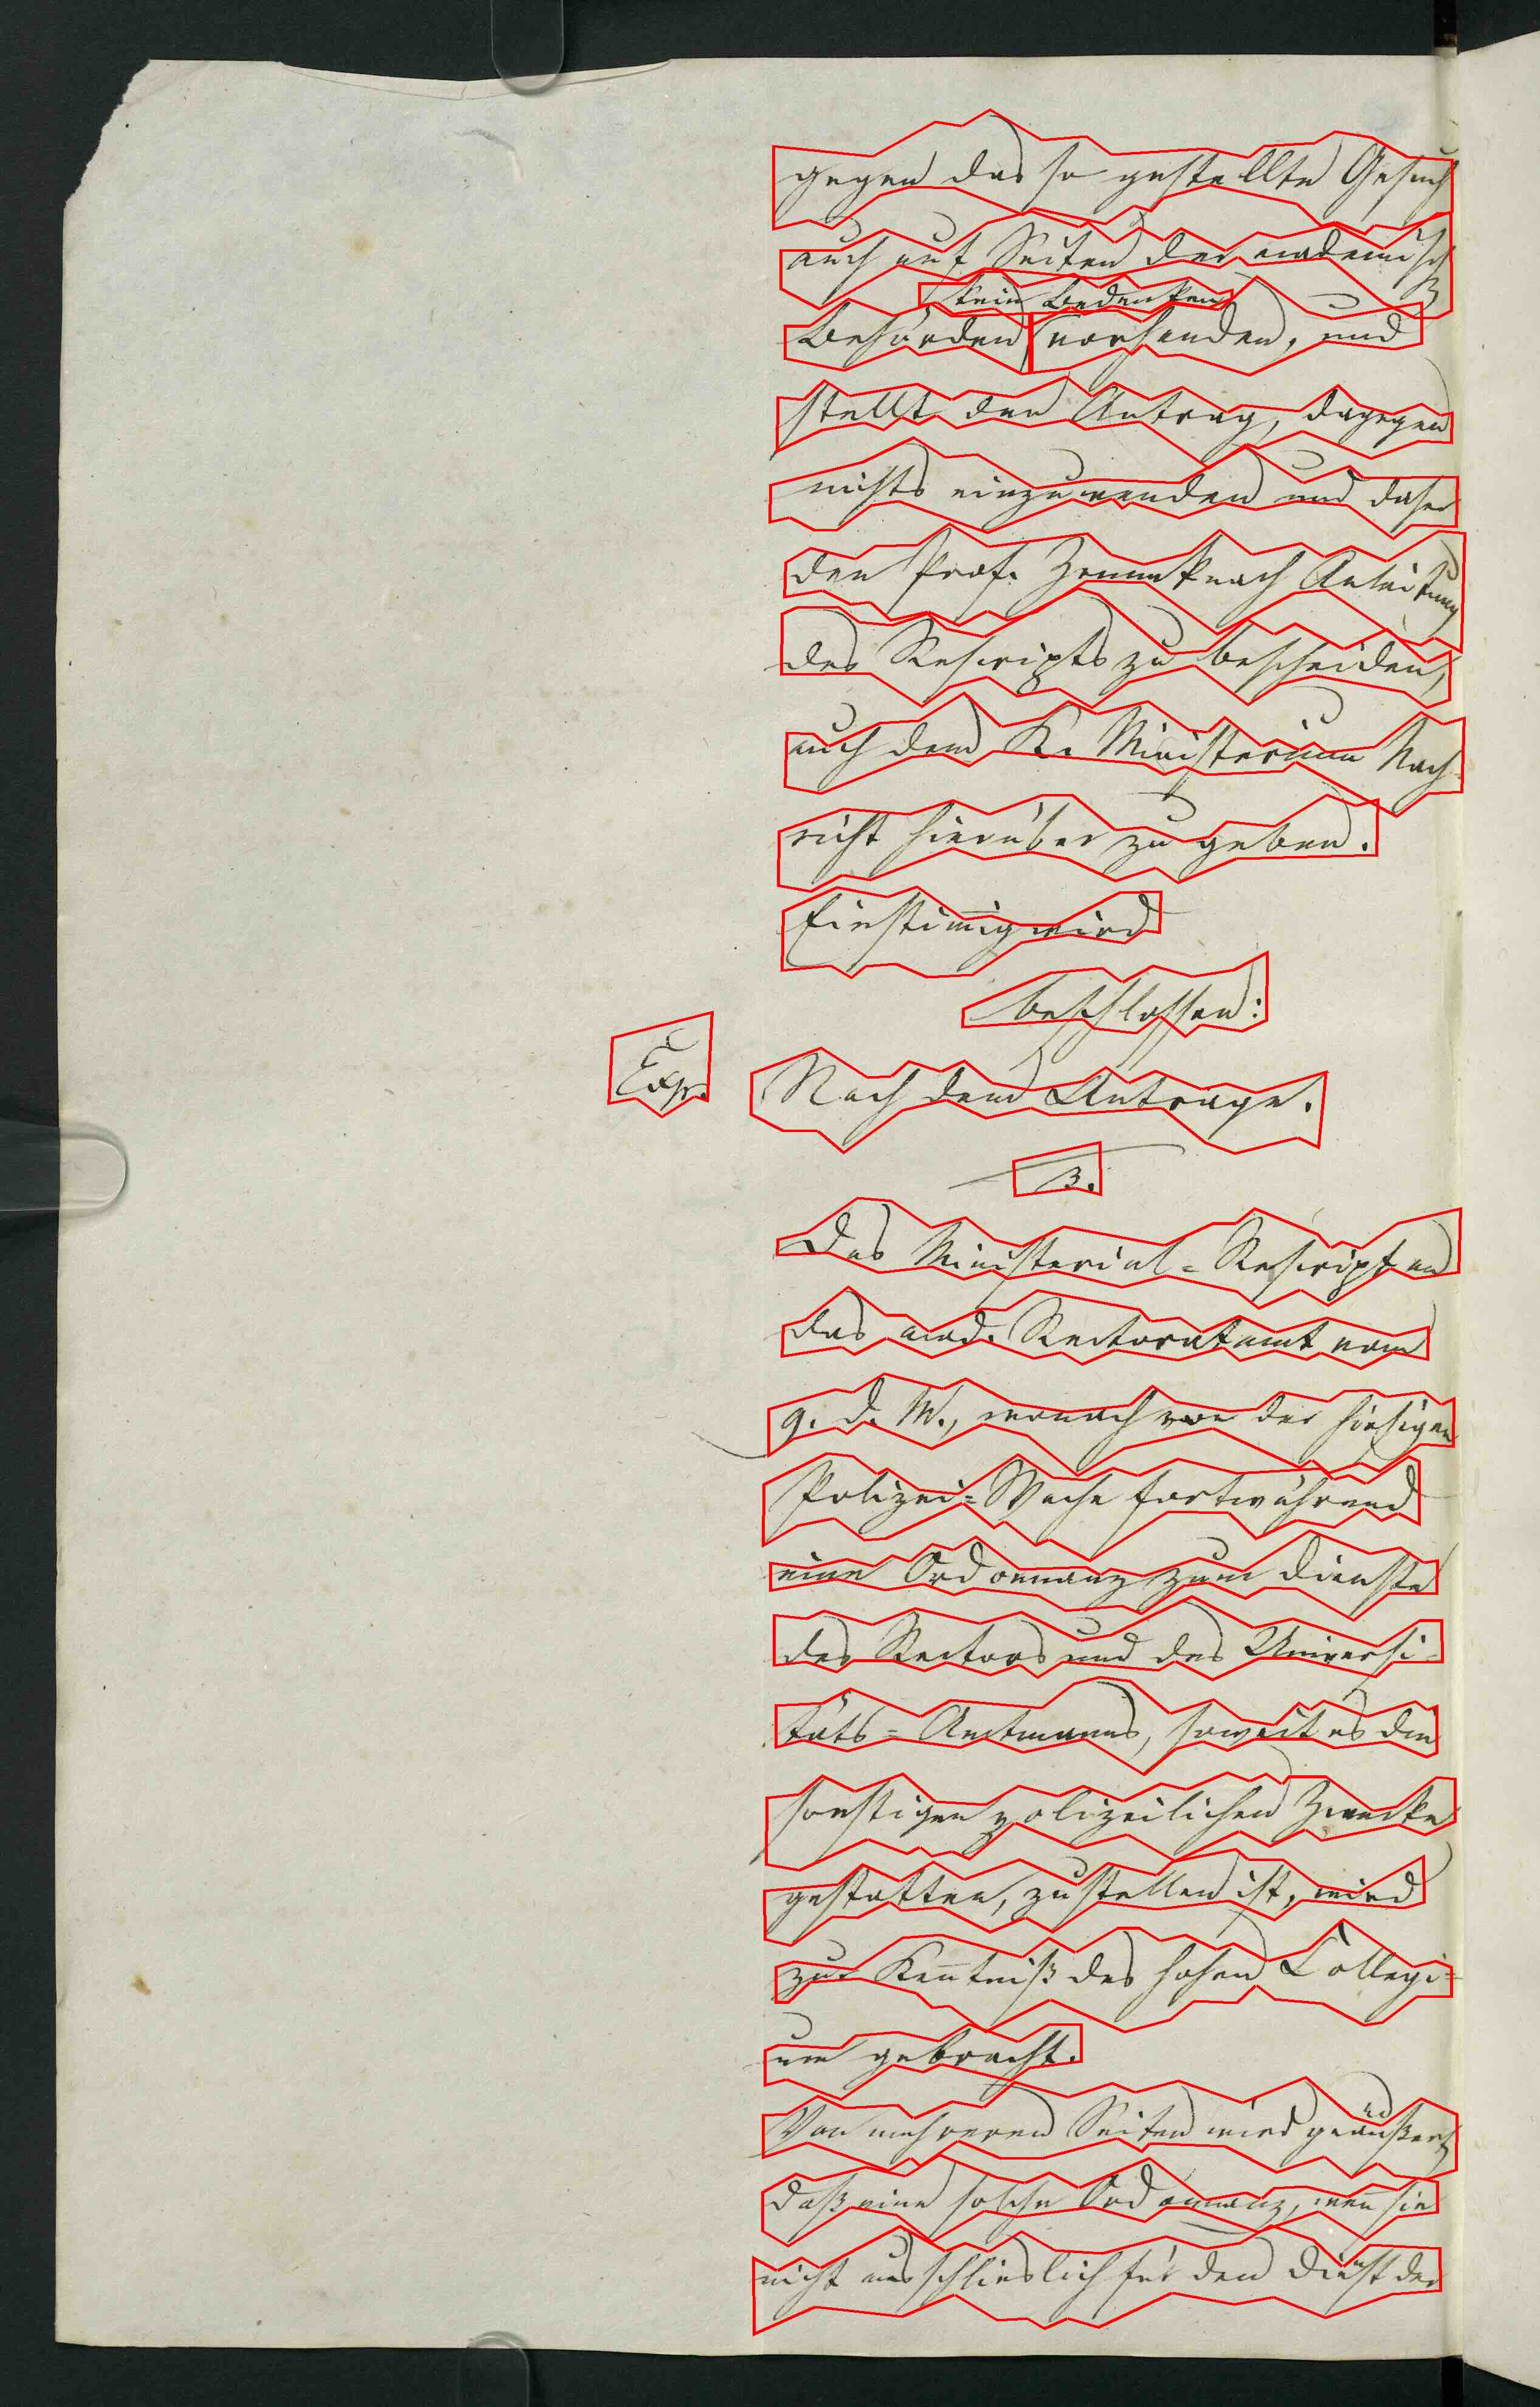 gegen das so gestellte Gesuch
auch auf Seiten der academisch
kein Bedenken
Behörden vorhanden, und
stellt den Antrag, dagegen
nichts einzuwenden und daher
den Prof. nach Anleitung
des Rescripts zu bescheiden,
auch dem K. Ministerium Nach-
richt hierüber zu geben.
Einstimmig wird
beschlossen:
Exp.
Nach dem Antrage.
3.
Das Ministerial-Rescript an
das acad. Rectoratamt vom
9. d. M., wonach von der hiesigen
Polizei-Wache fortwährend
eine Ordonnanz zum Dienste
des Rectors und des Universi-
täts-Amtmanns, soweit es die
sonstigen polizeilichen Zwecke
gestatten, zu stellen ist, wird
zur Kenntniß des hohen Collegi-
um gebracht.
Von mehreren Seiten wird geäußert,
daß eine solche Ordonnanz, wenn sie
nicht ausschlieslich für den Dienst der